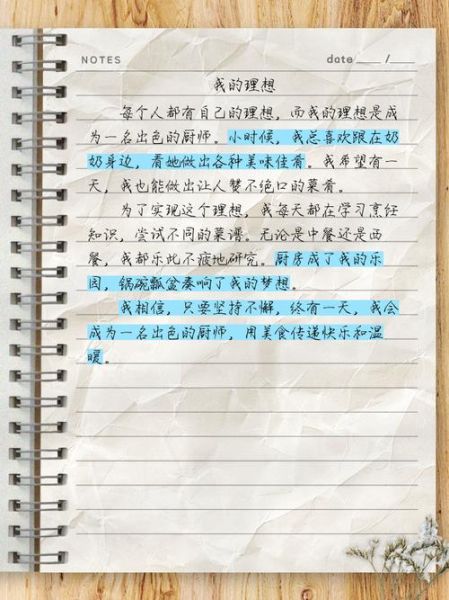 NOTES date ____ /____
我的理想
每个人都有自己的理想，而我的理想是成
为一名出色的厨师。小时候，我总喜欢跟在奶
奶身边，看她做出各种美味佳肴。我希望有一
天，我也能做出让人赞不绝口的菜肴。
为了实现这个理想，我每天都在学习烹饪
知识，尝试不同的菜谱。无论是中餐还是西
餐，我都乐此不疲地研究。厨房成了我的乐
园，锅碗瓢盆奏响了我的梦想。
我相信，只要坚持不懈，终有一天，我会
成为一名出色的厨师，用美食传递快乐和温
暖。